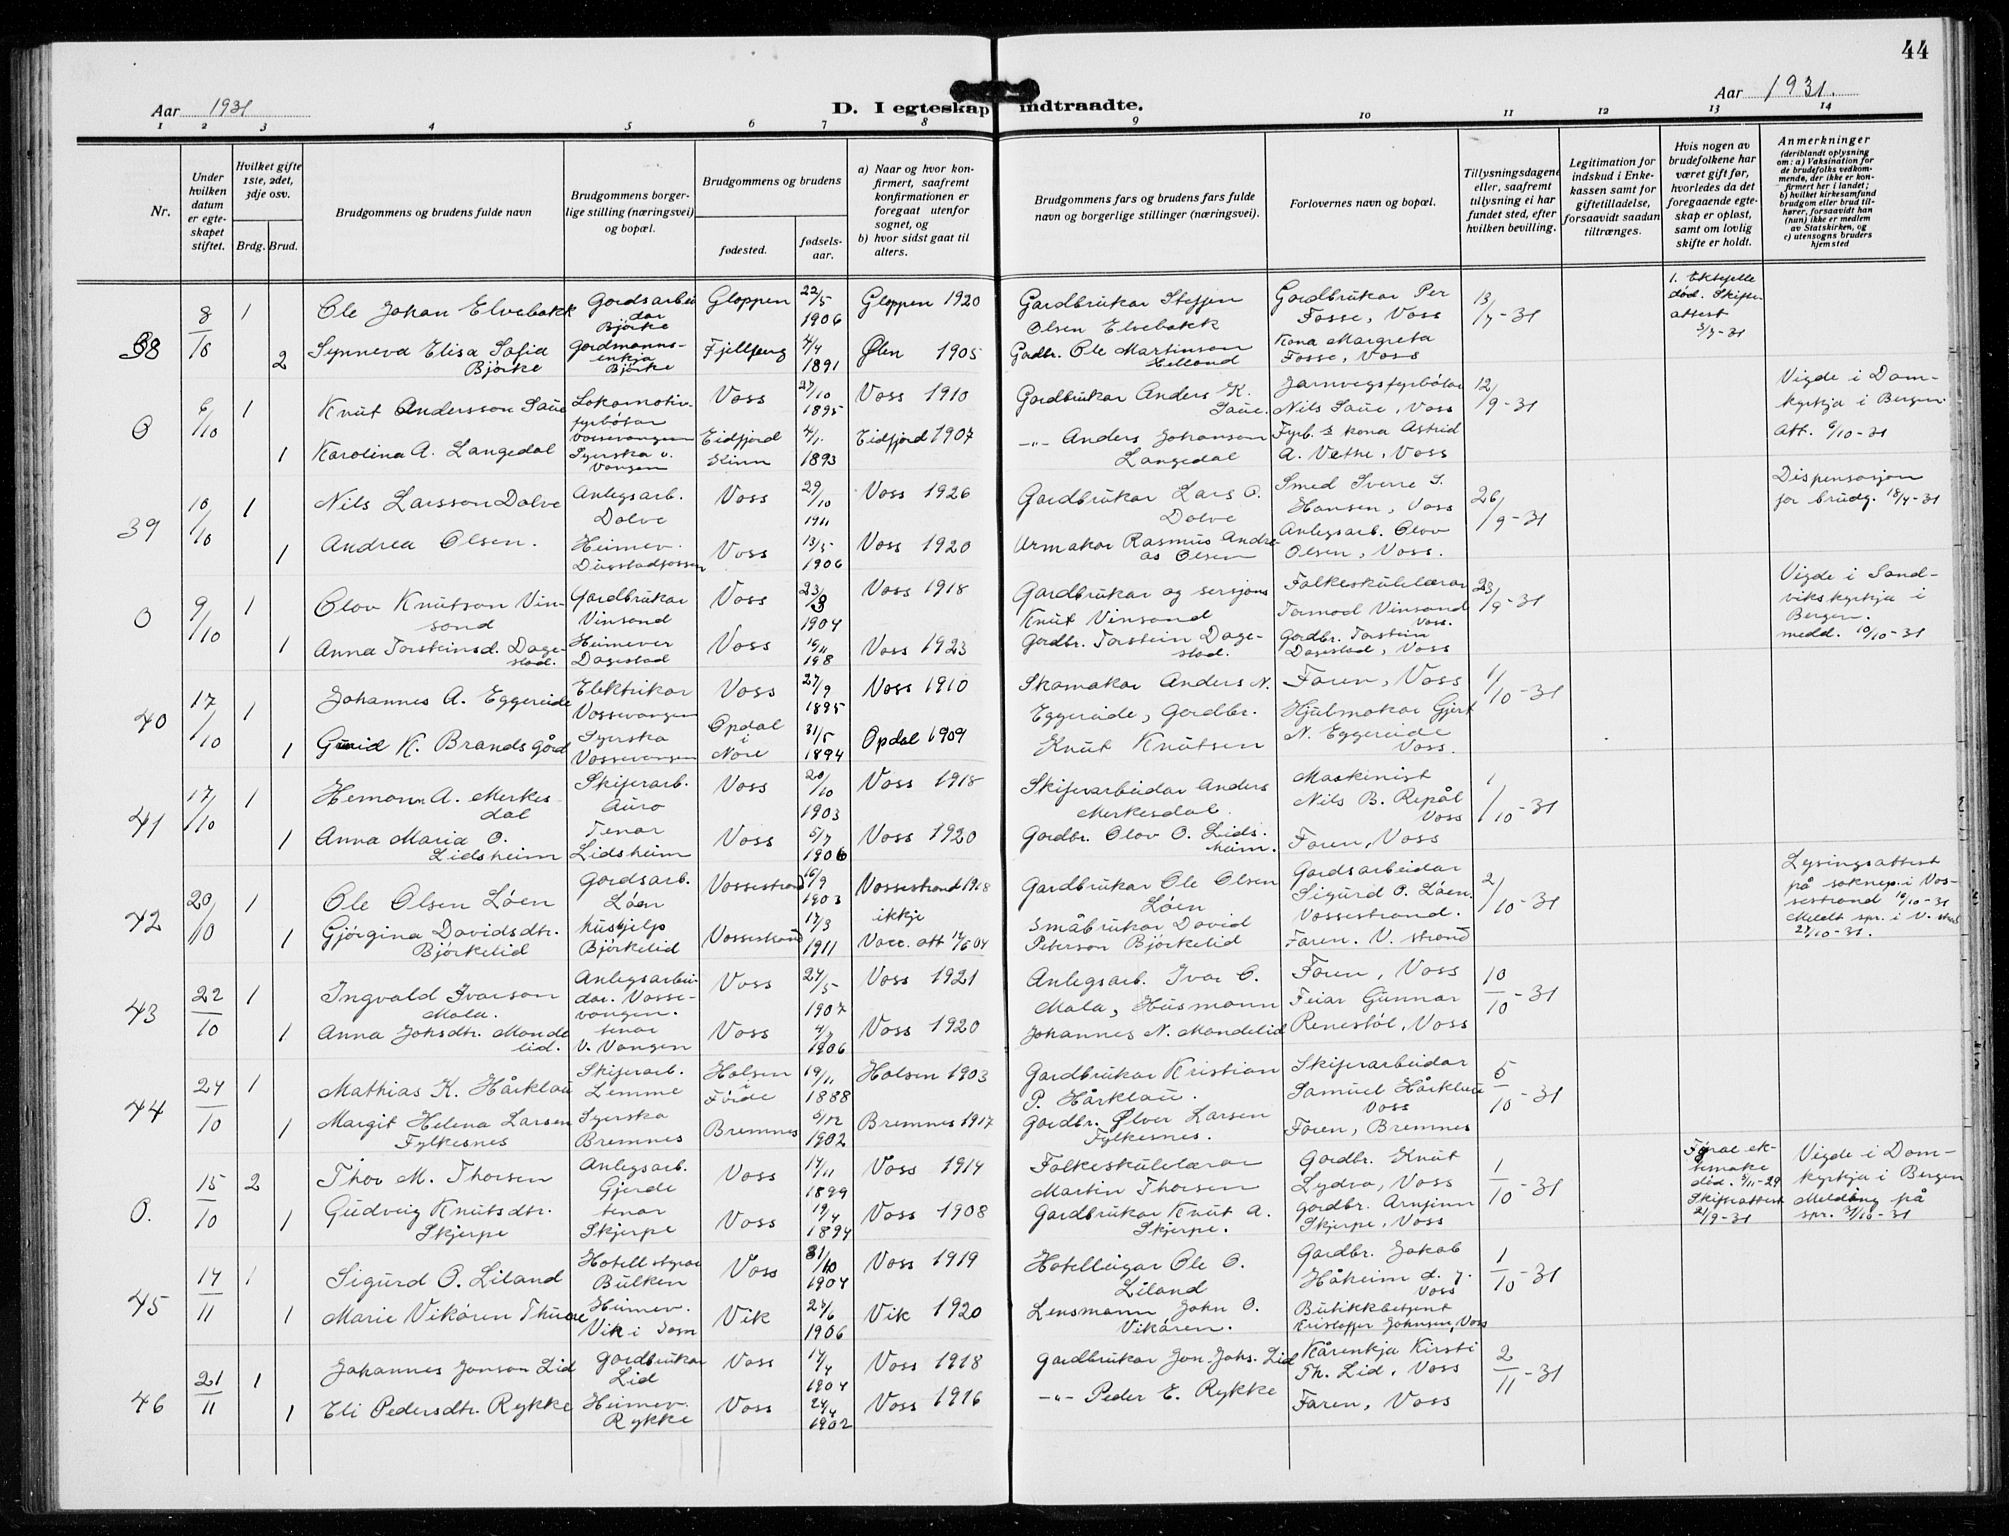 44
Aar 1931
D. I egteskap indtraadte.
Aar 1931.
1 2 3 4 5 6 7 8 9 10 11 12 13 14
Nr.
Under hvilken datum er egteskapet stiftet.
Hvilket gifte 1ste, 2det, 3dje osv.
Brdg. Brud.
Brudgommens og brudens fulde navn
Brudgommens borgerlige stilling (næringsvei) og bopæl.
Brudgommens og brudens
fødested.
fødselsaar.
a) Naar og hvor konfirmert, saafremt konfirmationen er foregaat utenfor sognet, og
b) hvor sidst gaat til alters.
Brudgommens fars og brudens fars fulde navn og borgerlige stillinger (næringsvei).
Forlovernes navn og bopæl.
Tillysningsdagene eller, saafremt tillysning ei har fundet sted, efter hvilken bevilling.
Legitimation for indskud i Enkekassen samt for giftetilladelse, forsaavidt saadan tiltrænges.
Hvis nogen av brudefolkene har været gift før, hvorledes da det foregaaende egteskap er opløst, samt om lovlig skifte er holdt.
Anmerkninger
(deriblandt oplysning om: a) Vaksination for de brudefolks vedkommende, der ikke er konfirmert her i landet; b) hvilket kirkesamfund brudgom eller brud tilhører, forsaavidt han (hun) ikke er medlem av Statskirken, og c) utensogns bruders hjemsted
38 8/10 1 Ole Johan Elvebakk Gardsarbeidar Bjørke Gloppen 22/5 1906 Gloppen 1920 Gardbrukar Steffen Olsen Elvebakk Gardbrukar Per Fosse, Voss 13/7-31 1. ektefelle død. Skifteattest 3/7-31
2 Synneva Elisa Sofia Bjørke Gardmannsenkja Bjørke Fjellberg 4/4 1891 Ølen 1905 Gardbr. Ole Martinson Helland Kona Margreta Fosse, Voss
0 6/10 1 Knut Andersson Saue Lokomotivfyrbøtar Vossevangen Voss 27/10 1895 Voss 1910 Gardbrukar Anders K. Saue. Jarnvegsfyrbøtar Nils Saue, Voss 12/9-31 Vigde i Domkyrkja i Bergen. Att. 6/10-31
1 Karolina A. Langedal Syerska V. Vangen Eidfjord Kinn 4/1. 1893 Eidfjord 1907 -"- Anders Johanson Langedal Fyrb. s kona Astrid A. Vethe, Voss
39 10/10 1 Nils Larsson Dolve Anlegsarb. Dolve Voss 29/10 1911 Voss 1926 Gardbrukar Lars O. Dolve Smed Sverre S. Hansen, Voss 26/9-31 Dispensasjon for brudg. 18/9-31
1 Andrea Olsen. Heimev. Voss 13/5 1906 Voss 1920 Urmakar Rasmus Andreas Olsen Anlegsarb. Olav Olsen, Voss.
0 9/10 1 Olav Knutson Vinsand Gardbrukar Vinsand Voss 23/8 1904 Voss 1918 Gardbrukar og sersjant Knut Vinsand Folkeskulelærar Tormod Vinsand Voss. 23/9-31 Vigde i Sandvikskyrkja i Bergen. medd. 10/10-31
1 Anna Torsteinsd. Dagestad. Heimever Dagestad Voss 16/11 198 Voss 1923 Gardbr. Torstein Dagestad. Gardbr. Torstein Dagestad, Voss
40 17/10 1 Johannes A. Eggereide Elektrikar Vossevangen Voss 27/9 1895 Voss 1910 Skomakar Anders N. Eggereide, Gardbr. Faren, Voss 1/10-31
1 Guid K. Brandsgård Syerska Vossevangen Opdal i Nore 31/5 1894 Opdal 1909 Knut Knutsen Hjulmakar Gjert N. Eggereide Voss.
41 17/10 1 Hemann A. Merkesdal Skiferarb. Auro Voss 20/10 1903 Voss 1918 Skiferarbeidar Anders Merkesdal. Maskinist Nils B. Repål Voss 1/10-31
1 Anna Maria O. Lidsheim Tenar Lidsheim Voss 5/7 1906 Voss 1920 Gardbr. Olav O. Lidsheim. Faren, Voss
42 20/10 1 Ole Olsen Løen Gardsarb. Løen Vossestrand 16/9 1903 Vossestrand 1918 Gardbrukar Ole Olsen Løen Gardsarbeidar Sigurd O. Løen. Vossestrand. 2/10-31 Lysingsattest på soknepr. i Vossestrand 10/10-31 Meldt spr. i V. strand 27/10-31.
1 Gjørgina Davidsdtr. Bjørkelid Hushjelp Bjørkelid Vossestrand 17/3 1911 ikkje Vacc. att 12/6 04 Småbrukar David Peterson Bjørkelid Faren. V. strand
43 22/10 1 Ingvald Ivarson Mala. Anlegsarbeidar. Vossevangen. Voss 24/5 1907 Voss 1921 Anlegsarb. Ivar O. Mala, Husmann Faren, Voss 10/10-31
1 Anna Johsdtr. Mandelid. tenar V. Vangen Voss 4/7 1906 Voss 1920 Johannes N. Mandelid Feiar Gunnar Renestøl, Voss
44 24/10 1 Mathias K. Hårklau Skiferarb. Lemme Holsen i Førde 19/11 1888 Holsen 1903 Gardbrukar Kristian P. Hårklau. Skiferarbeidar Samuel Hårklau Voss 5/10-31
1 Margit Helena Larsen Fylkesnes Syerska Bremnes Bremnes 5/12 1902 Bremnes 1917 Gardbr. Ølver Larsen Fylkesnes. Faren, Bremnes
0. 15/10 2 Thor M. Thorsen Anlegsarb. Gjerde Voss 14/11 1899 Voss 1914 Folkeskulelærar Martin Thorsen Gardbr. Knut Lydva, Voss 1/10-31 Førre ektemake død. 5/11-29 Skifteattest 21/9-31 Vigde i Domkyrkja i Bergen Melding på spr. 31/10-31
1 Gudveig Knutsdtr. Skjerpe tenar Skjerpe Voss 19/4 1894 Voss 1908 Gardbrukar Knut A. Skjerpe. Gardbr. Arnfinn Skjerpe, Voss
45 14/11 1 Sigurd O. Liland Hotellstyrar Bulken Voss 31/10 1904 Voss 1919 Hotelleigar Ole O. Liland Gardbr. Jakob Håheim d. y. Voss 1/10-31
1 Marie Vikøren Thue Heimev. Vik i Sogn Vik 27/6 1906 Vik 1920 Lensmann John O. Vikøren. Butikkbetjent Kristoffer Johnsen, Voss
46 21/11 1 Johannes Jonson Lid Gardbrukar Lid Voss 17/4 1904 Voss 1918 Gardbrukar Jon Johs. Lid Kårenkja Kirsti Th. Lid, Voss 2/11-31
1 Eli Pedersdtr. Rykke Heimev. Rykke Voss 24/4 1902 Voss 1916 -"- Peder E. Rykke Faren, Voss